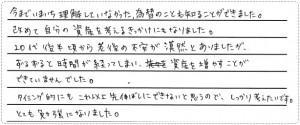 今までいまいち理解していなかった、為替のことも知ることができました。
改めて自分の資産を考えるきっかけにもなりました。
20代後半頃から老後の不安が漠然とありましたが、
あるあると時間が経ってしまい、資産を増やすことが
できていませんでした。
タイミング的にもこれ以上先伸ばしにできないと思うので、しっかり考えたいです。
とても勉強になりました。